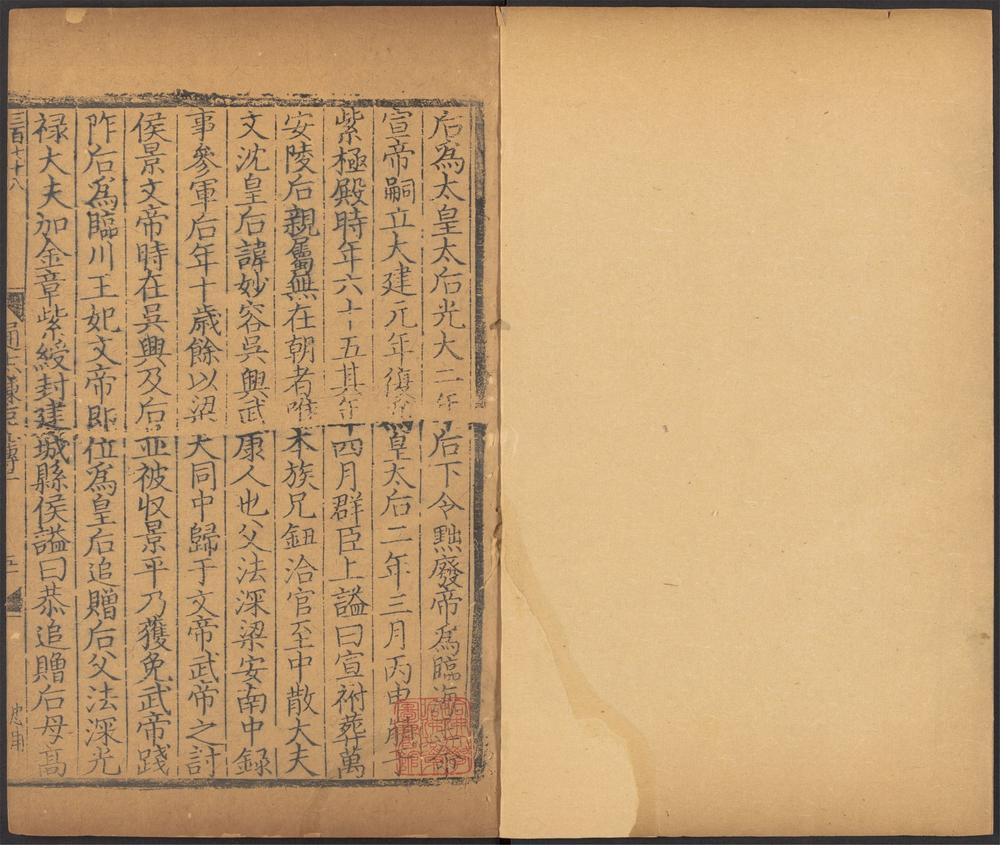 后為太皇太后光大二年后下令黜廢帝為臨海王命
宣帝嗣立大建元年復為皇太后二年三月丙申崩于
紫極殿時年六十五其年四月群臣上謚曰宣祔葬萬
安陵后親屬無在朝者唯本族兄鈕洽官至中散大夫
文沈皇后諱妙容吳興武康人也父法深梁安南中録
事參軍后年十歲餘以梁大同中歸于文帝武帝之討
侯景文帝時在吳興及后並被收景平乃獲免武帝踐
阼后為臨川王妃文帝即位為皇后追贈后父法深光
禄大夫加金章紫綬封建城縣侯謚曰恭追贈后母髙
三百十八